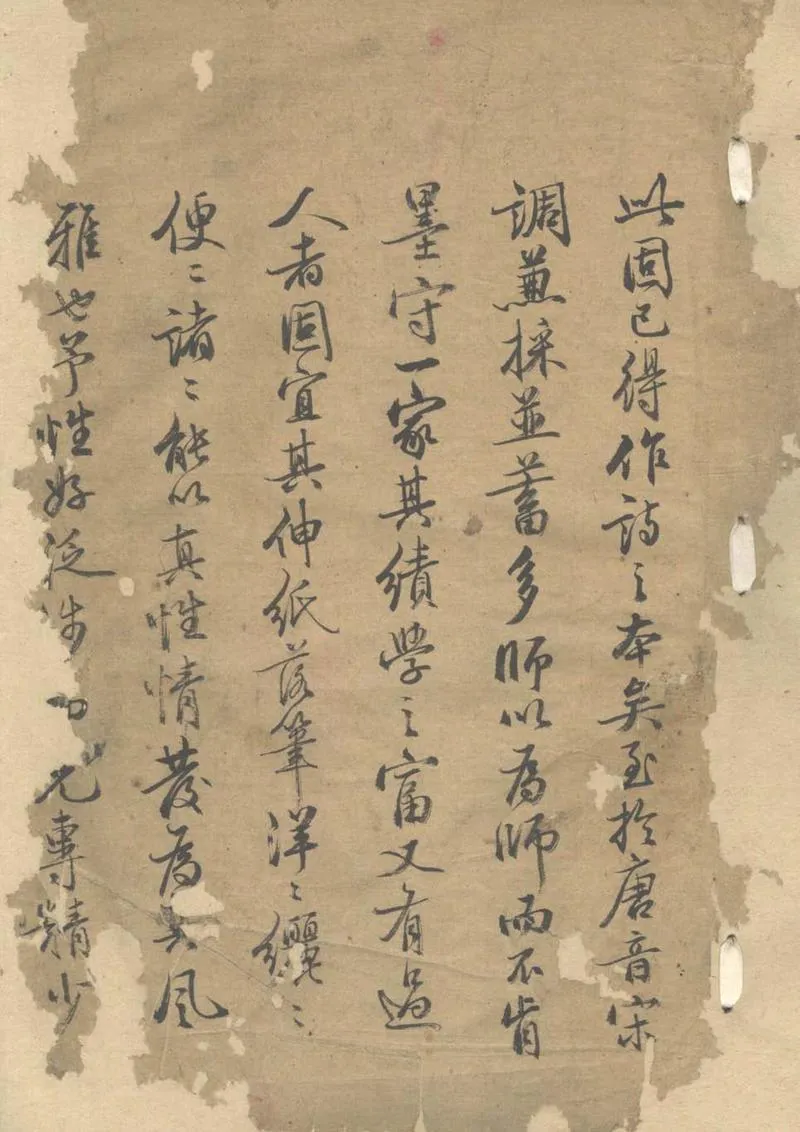 此固已得作詩之本矣至於唐音宋
調兼採並蓄多師以為師而不肯
墨守一家其績學之富又有過
人者固宜其伸紙落筆洋〻纚〻
便〻諸〻能以真性情發為大風
雅也予性好泛涉尤專精少